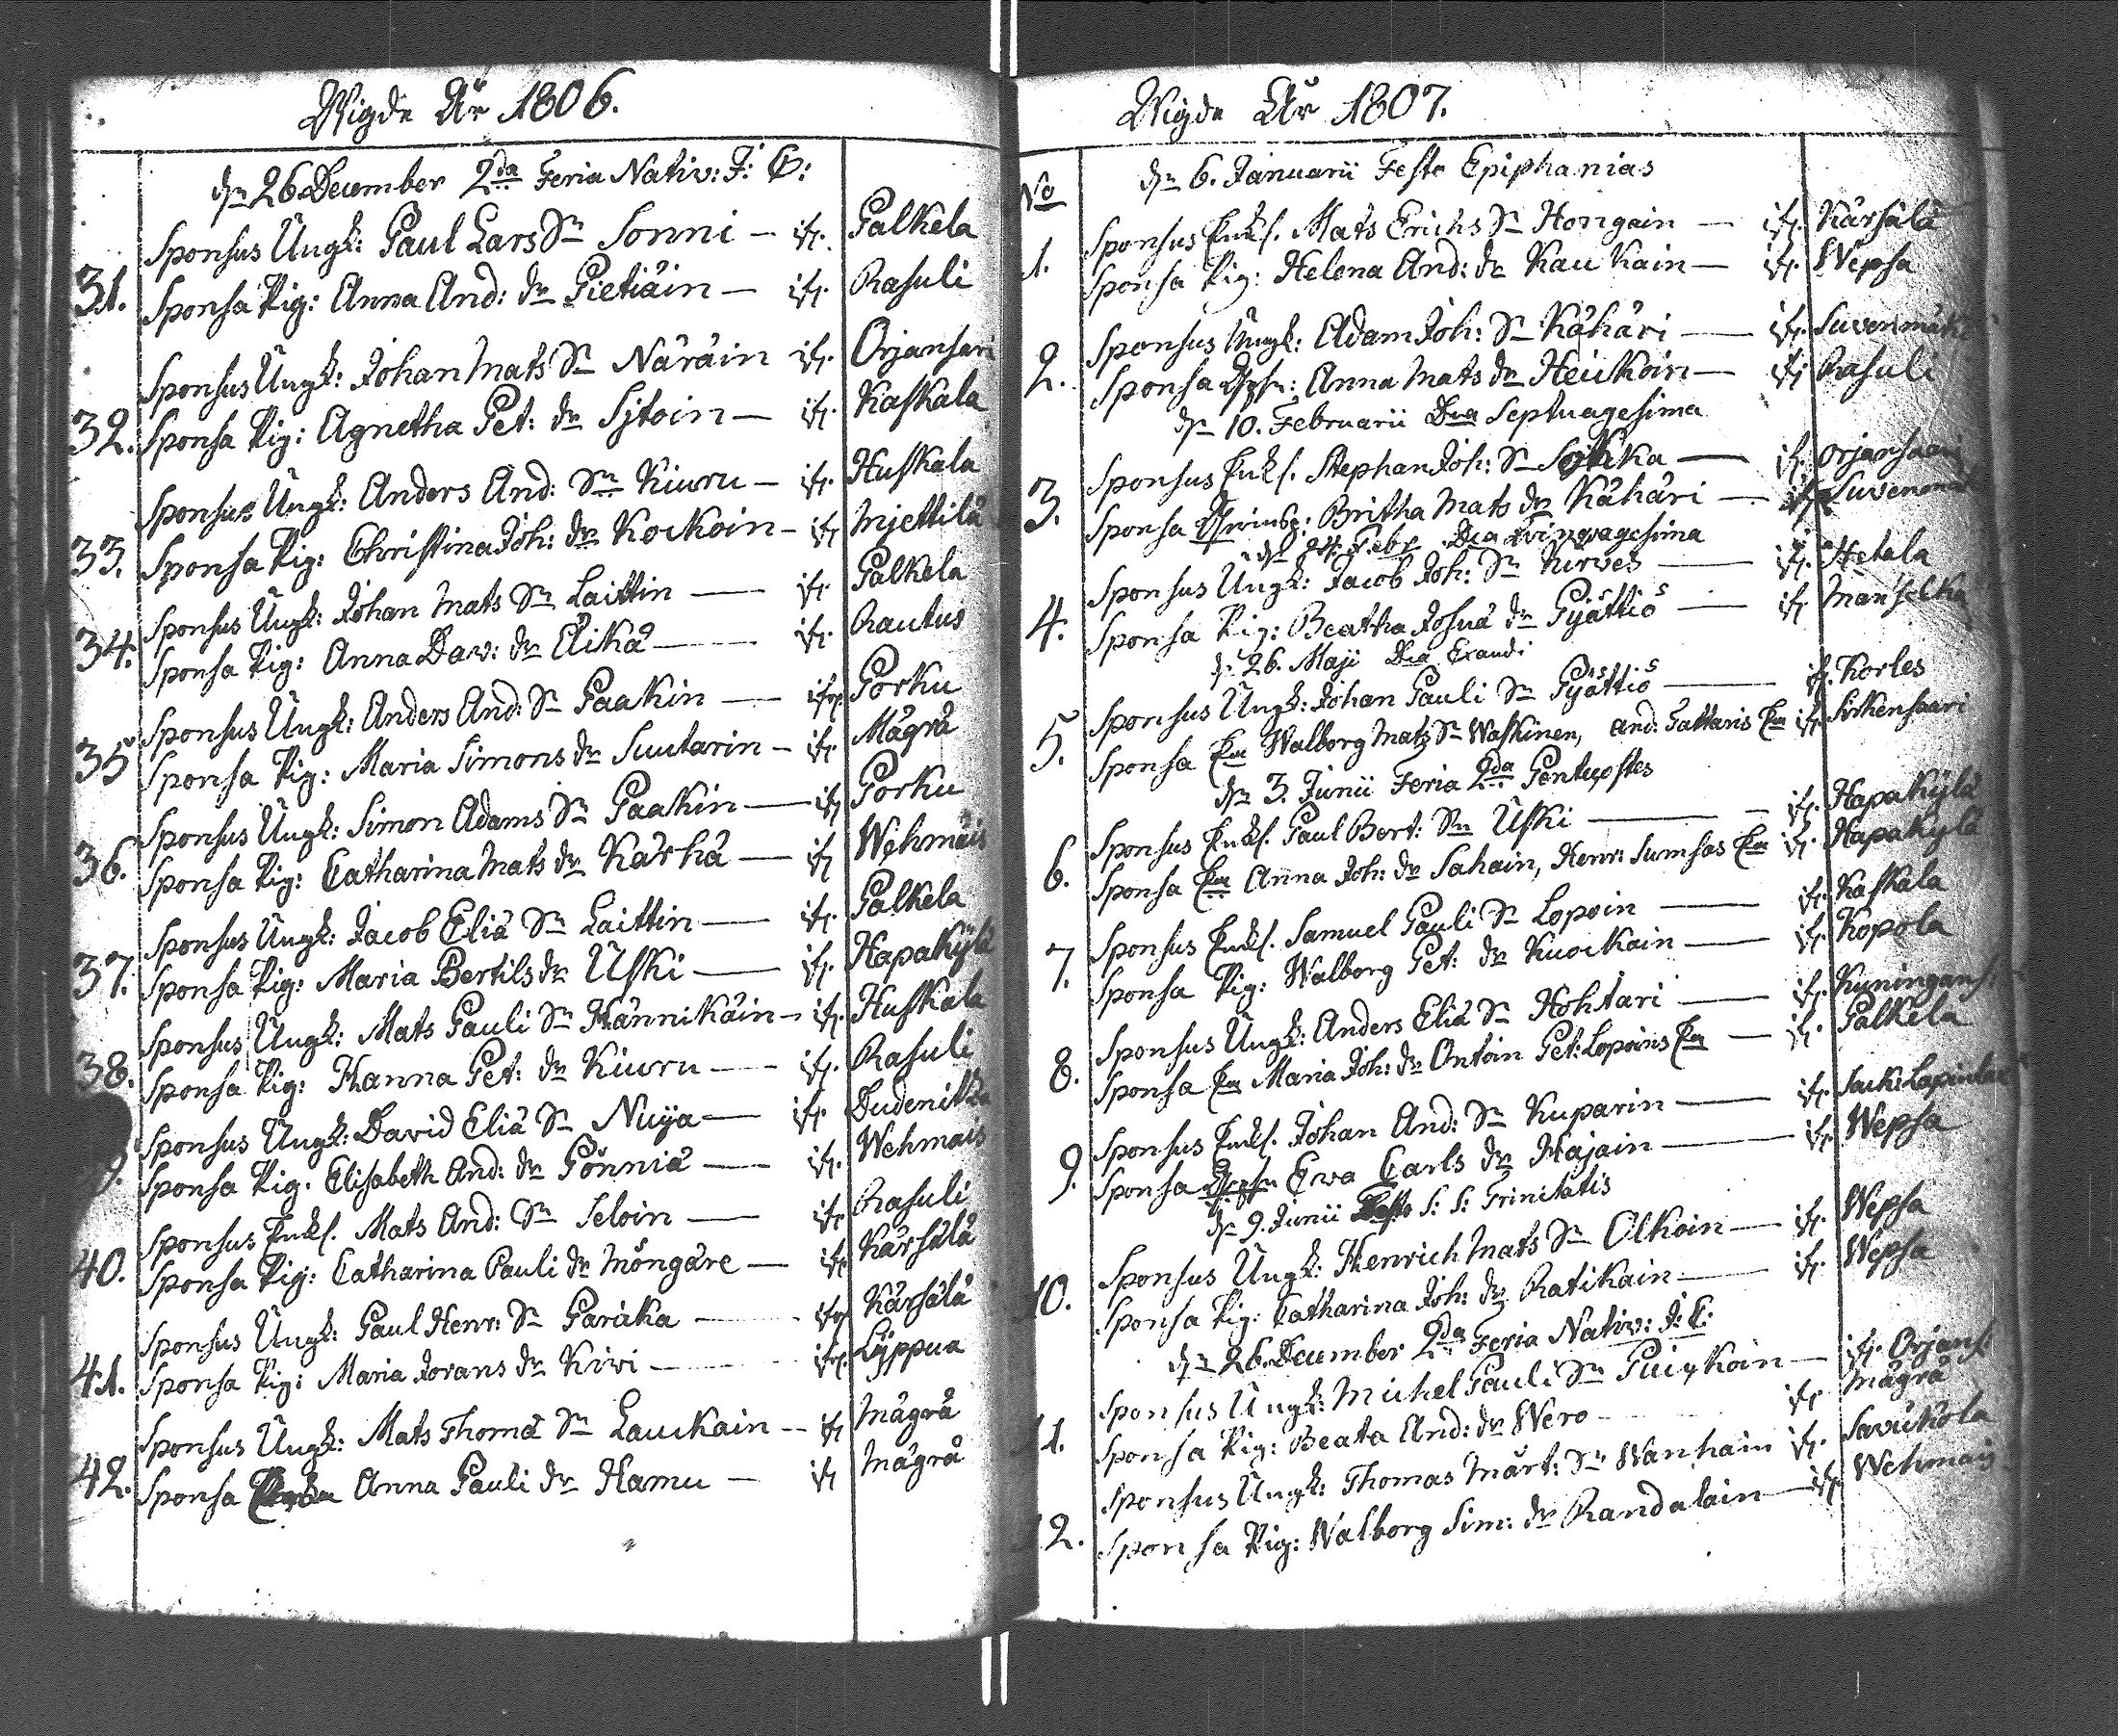 Wigde År 1806.
dn 26 December 2da Feria Nativ: J: C:
Sponsus Ungk: Paul Lars Sn Sonni — ifr. Palkela
31. Sponsa Pig: Anna And: dr Pietiäin — ifr. Rasuli
Sponsus Ungk: Johan Mats Sn Näräin ifr. Orjansari
32. Sponsa Pig: Agnetha Pet: dr Sjtoin — ifr. Kaskala
Sponsus Ungk: Anders And: Sn Kiuru — ifr. Huskala
33. Sponsa Pig: Christina Joh: dr Kockoin — ifr. Mjettilä
Sponsus Ungk: Johan Mats Sn Laittin — ifr. Palkela
34. Sponsa Pig: Anna Dav: dr Elikä — ifr. Rautus
Sponsus Ungk: Anders And: Sn Paakin — ifr. Porku
35 Sponsa Pig: Maria Simons dr Suutarin — ifr. Mägrä
Sponsus Ungk: Simon Adams Sn Paakin — ifr. Porku
36. Sponsa Pig: Catharina Mats dr Kärhä — ifr. Wehmäis
Sponsus Ungk: Jacob Eliä Sn Laittin — ifr. Palkela
37. Sponsa Pig: Maria Bertils dr Uski — ifr. Hapakylä
Sponsus Ungk: Mats Pauli Sn Hännikäin — ifr. Huskala
38. Sponsa Pig: Hanna Pet: dr Kiuru — ifr. Rasuli
Sponsus Ungk: David Eliä Sn Nuija — ifr.
9. Sponsa Pig. Elisabeth And: dr Pönniä — ifr. Wehmais
Sponsus Enkl. Mats And: Sn Seloin — ifr. Rasuli
40. Sponsa Pig: Catharina Pauli dr Möngäre — ifr. Kärsälä
Sponsus Ungk: Paul Henr: Sn Paräka — ifr. Kärsälä
41. Sponsa Pig: Maria Jorans dr Kivi — ifr. Lyppua
Sponsus Ungk: Mats Thomä Sn Lauckain — ifr. Mägrä
42. Sponsa Anna Pauli dr Hamu — ifr. Mägrä
Wigde År 1807.
No dn 6. Januarii Festo Epiphanias
Sponsus Enkl. Mats Erichs Sn Hongain — ifr. Kärsälä
1. Sponsa Pig: Helena And: dr Kaukain — ifr. Wepsa
Sponsus Ungk: Adam Joh: Sn Kähäri — ifr. Suvenmäki
2. Sponsa Anna Mats dr Heiskoin — ifr. Rasuli
dn 10. Februarii Dca Septuagesima
Sponsus Enkl. Stephan Joh: Sn — ifr. Orjansaari
3. Sponsa Britha Mats dr Kähäri — ifr.
Febr. Dca Qvinqvagesima
Sponsus Ungk: Jacob Joh: Sn Kirves — ifr. Hetala
4. Sponsa Pig: Beatha Josuä dr Pyättiö — ifr. Mänselkä
dn 26. Maji Dca Exaudi
Sponsus Ungk: Johan Pauli Sn Pyöttiö — ifr. Korles
5. Sponsa Ea Walborg Mats Sn Waskinen, And: Tattaris Ea ifr. Sirkensaari
dn 3. Junii Feria 2da Pentecostes
Sponsus Enkl. Paul Bert: Sn Uski — ifr. Hapakylä
6. Sponsa Ea Anna Joh: dr Sahain, Henr: Sumsas Ea ifr. Hapakylä
Sponsus Enkl. Samuel Pauli Sn Lopoin — ifr. Kaskala
7. Sponsa Pig: Walborg Pet: dr Kuockain — ifr. Kopola
Sponsus Ungk: Anders Eliä Sn Hohtari — ifr.
8. Sponsa Ea Maria Joh: dr Ontoin Pet: Lopoins Ea — ifr. Palkela
Sponsus Enkl. Johan And: Sn Kuparin — ifr.
9. Sponsa Ewa Carls dr Hajain — ifr. Wepsa
dn 9. Junii Festo S: S: Trinitatis
Sponsus Ungk: Henrich Mats Sn Olkoin — ifr. Wepsa
10. Sponsa Pig: Catharina Joh: dr Ratikain — ifr. Wepsa
dn 26. December 2da Feria Nativ: J: C:
Sponsus Ungk: Michel Pauli Sn Puickoin — ifr. Orjans.
11. Sponsa Pig: Beata And: dr Wero — ifr. Mägrä
Sponsus Ungk: Thomas Märt: Sn Wanhain ifr. Savikola
12. Sponsa Pig: Walborg Sim: dr Randalain — ifr. Wehmais